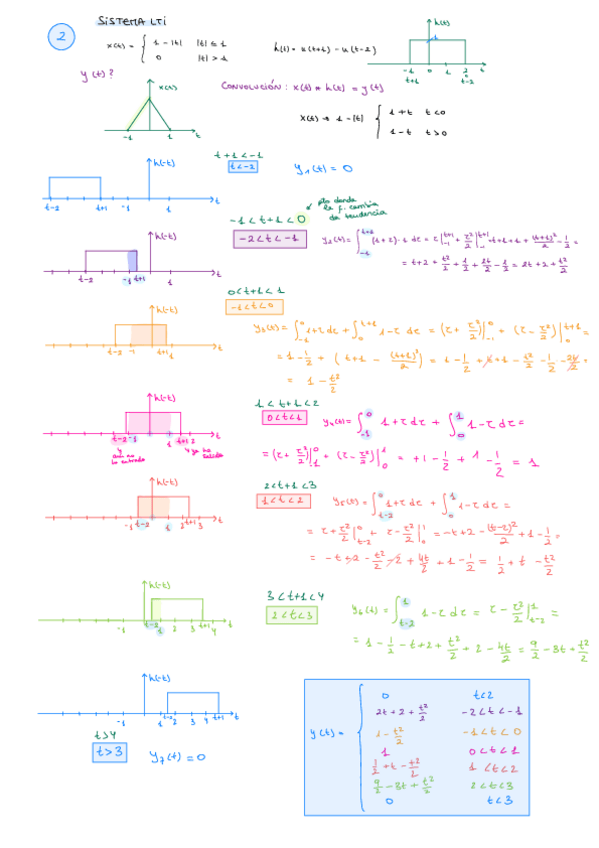 2
SISTEMA LTI
x(t) = { 1 - |t| |t| ≤ 1
0 |t| > 1
h(t) = u(t+1) - u(t-2)
h(t)
-1 0 2 t
t+1 t-2
y(t)?
CONVOLUCIÓN: x(t) * h(t) = y(t)
x(t)
-1 1 t
x(t) → 1-|t| { 1+t t<0
1-t t>0
t+1<-1
t<-2
y₁(t) = 0
h(-t)
t-2 t+1 -1 1 t
pto donde
la f. cambia
de tendencia
-1<t+1<0
-2<t<-1
h(-t)
t-2 -1 t+1 1 t
= t+2+t²/2+1/2+2t/2-1/2 = 2t+2+t²/2
0<t+1<1
-1<t<0
h(-t)
t-2 -1 t+1 t
y₃(t) = ∫₋₁⁰ 1+τ dτ + ∫₀ᵗ⁺¹ 1-τ dτ = (τ+τ²/2)|₋₁⁰ + (τ-τ²/2)|₀ᵗ⁺¹ =
= 1-1/2 + (t+1-(t+1)²/2) = 1-1/2+t+1-t²/2-1/2-2t/2 =
= 1-t²/2
1<t+1<2
0<t<1
h(-t)
t-2 -1 1 t+1 2 t
aún no
ha entrado
ya ha
salido
y₄(t) = ∫₋₁⁰ 1+τ dτ + ∫₀¹ 1-τ dτ =
= (τ+τ²/2)|₋₁⁰ + (τ-τ²/2)|₀¹ = +1-1/2+1-1/2 = 1
2<t+1<3
1<t<2
h(-t)
-1 t-2 1 2 t+1 3 t
y₅(t) = ∫ₜ₋₂⁰ 1+τ dτ + ∫₀¹ 1-τ dτ =
= τ+τ²/2|ₜ₋₂⁰ + τ-τ²/2|₀¹ = -t+2-(t-2)²/2+1-1/2 =
= -t+2-t²/2-2+4t/2+1-1/2 = 1/2+t-t²/2
3<t+1<4
2<t<3
h(-t)
-1 t-2 1 2 3 t+1 4 t
y₆(t) = ∫ₜ₋₂¹ 1-τ dτ = τ-τ²/2|ₜ₋₂¹ =
= 1-1/2-t+2+t²/2+2-4t/2 = 9/2-3t+t²/2
h(-t)
-1 1 t-2 2 3 4 t+1 t
t>4
t>3
y₇(t) = 0
y(t) = { 0 t<2
2t+2+t²/2 -2<t<-1
1-t²/2 -1<t<0
1 0<t<1
1/2+t-t²/2 1<t<2
9/2-3t+t²/2 2<t<3
0 t<3